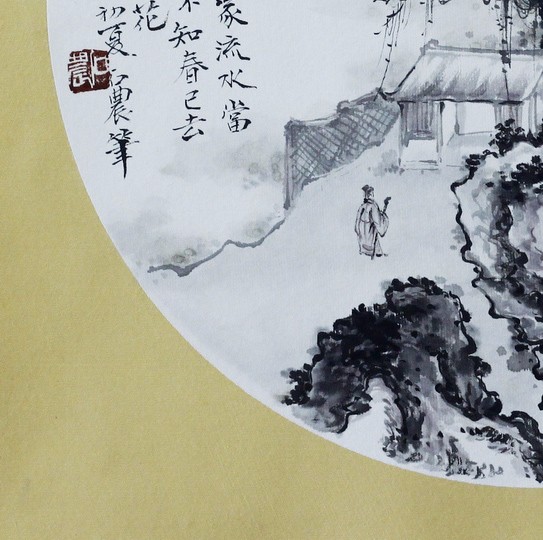 家流水當
不知春已去
花
初夏石農筆
石農